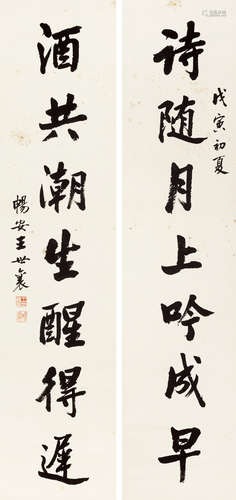 诗随月上吟成早
戊寅初夏
酒共潮生醒得遲
暢安王世襄